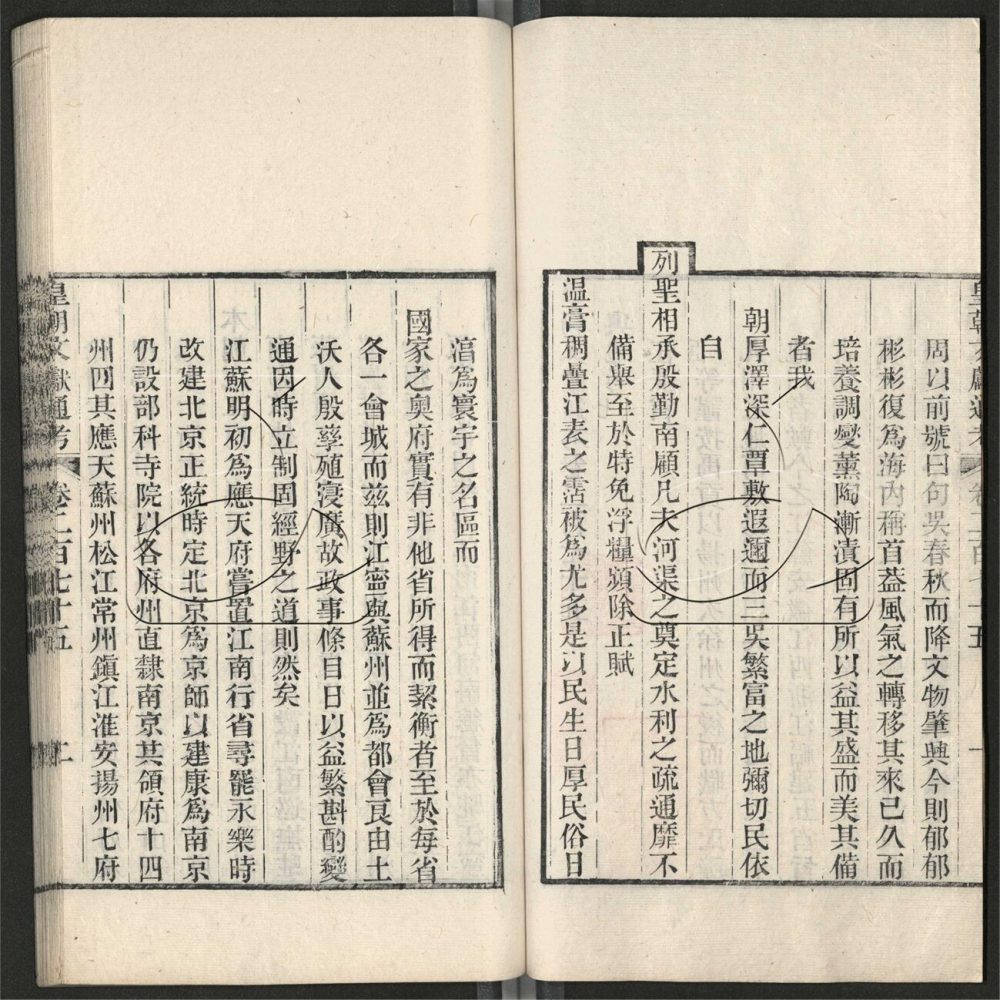 皇朝文獻通考　卷二百七十五　一
周以前號曰句吳春秋而降文物肇興今則郁郁
彬彬復爲海內稱首葢風氣之轉移其來已久而
培養調燮薰陶漸漬固有所以益其盛而美其備
者我
朝厚澤深仁覃敷遐邇而三吳繁富之地彌切民依
自
列聖相承殷勤南顧凡夫河渠之奠定水利之疏通靡不
備舉至於特免浮糧頻除正賦
溫膏稠疊江表之霑被爲尤多是以民生日厚民俗日
湻爲寰宇之名區而
國家之奧府實有非他省所得而絜衡者至於每省
各一會城而兹則江寧與蘇州並爲都會良由土
沃人殷孳殖寖廣故政事條目日以益繁斟酌變
通因時立制固經野之道則然矣
江蘇明初爲應天府嘗置江南行省尋罷永樂時
改建北京正統時定北京爲京師以建康爲南京
仍設部科寺院以各府州直隸南京共領府十四
州四其應天蘇州松江常州鎭江淮安揚州七府
皇朝文獻通考　卷二百七十五　二